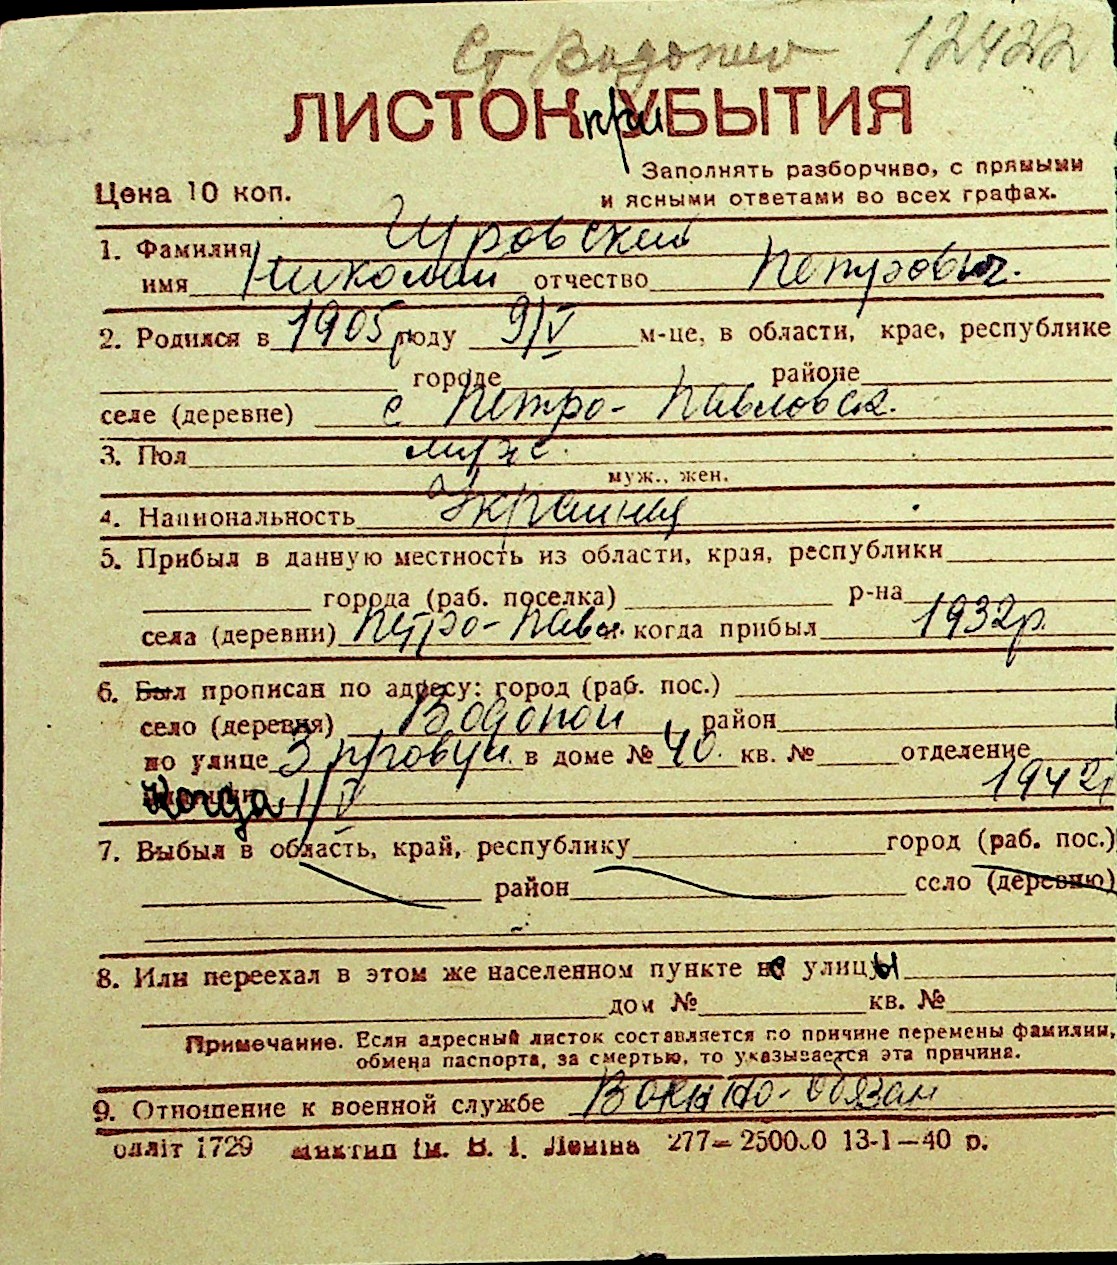 Ст Водопой 12422
ЛИСТОК при УБЫТИЯ
Цена 10 коп.
Заполнять разборчиво, с прямыми
и ясными ответами во всех графах.
1. Фамилия Щровский
имя Николай отчество Петрович.
2. Родился в 1905 году 9/V м-це, в области, крае, республике
городе районе
селе (деревне) с Петро-Павловск.
3. Пол мужс.
муж., жен.
4. Национальность Украинец
5. Прибыл в данную местность из области, края, республики
города (раб. поселка) р-на
села (деревни) Петро-Павл. когда прибыл 1932р.
6. Был прописан по адресу: город (раб. пос.)
село (деревня) Водопой район
по улице 3 пров ул. в доме № 40. кв. № отделение
Когда 1/V 1942р
7. Выбыл в область, край, республику город (раб. пос.)
район село (деревню)
8. Или переехал в этом же населенном пункте не улицы
дом № кв. №
Примечание. Если адресный листок составляется по причине перемены фамилии,
обмена паспорта, за смертью, то указывается эта причина.
9. Отношение к военной службе Воєнно-обязан
Одліт 1729 ім. В. І. Леніна 277—250000 13-1—40 р.